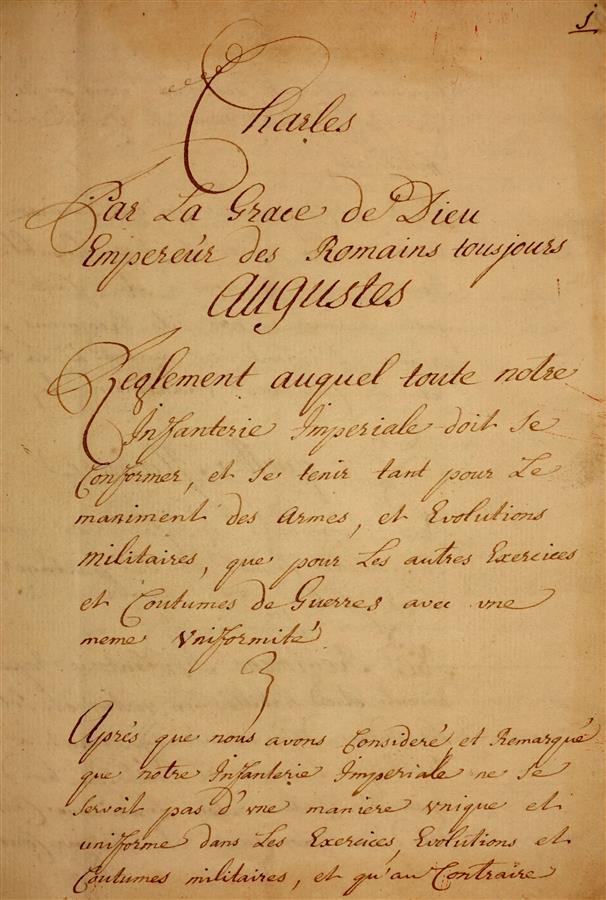 1
Charles
Par La Grace de Dieu
Empereur des Romains tousjours
Augustes
Reglement auquel toute notre
Infanterie Imperiale doit se
Conformer, et se tenir tant pour Le
maniment des Armes, et Evolutions
militaires, que pour Les autres Exercices
et Coutumes de Guerres avec vne
meme Vniformité
Aprés que nous avons Consideré, et Remarqué
que notre Infanterie Imperiale ne se
servoit pas d'vne maniere vnique et
uniforme dans Les Exercices, Evolutions et
Coutumes militaires, et qu'au Contraire